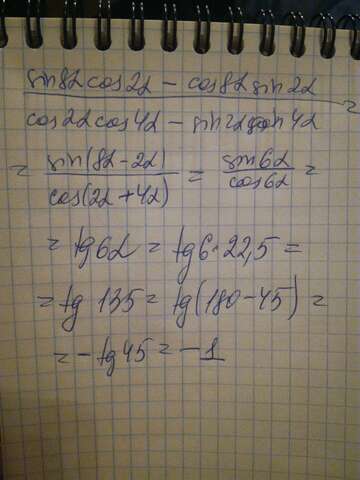 sin8α cos2α - cos8α sin2α =
cos2α cos4α - sin2α sin4α
= sin(8α-2α) = sin6α =
cos(2α+4α) cos6α
= tg6α = tg6·22,5 =
= tg 135 = tg(180-45) =
= -tg45 = -1